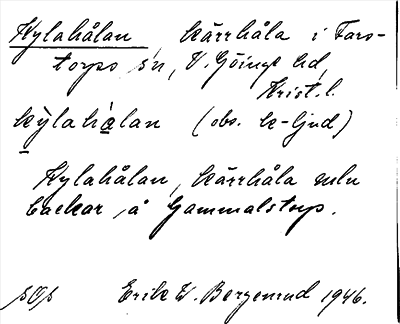 Kylahålan kärrhåla i Fars-
torps sn, V. Göinge hd,
Krist. l.
kỳlahàlan (obs. k-ljud)
Kylahålan, kärrhåla mln
backar å Gammalstorp.
SOS Erik W. Bergenrud 1946.